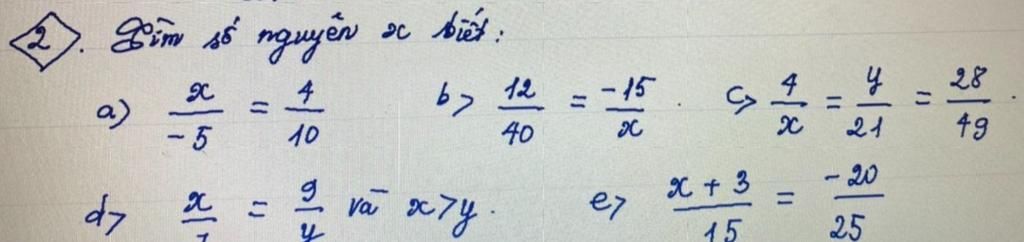 2. Tìm số nguyên x biết:
a) x/-5 = 4/10 b> 12/40 = -15/x. c> 4/x = y/21 = 28/49.
d> x/ = 9/y và x>y. e> x+3/15 = -20/25